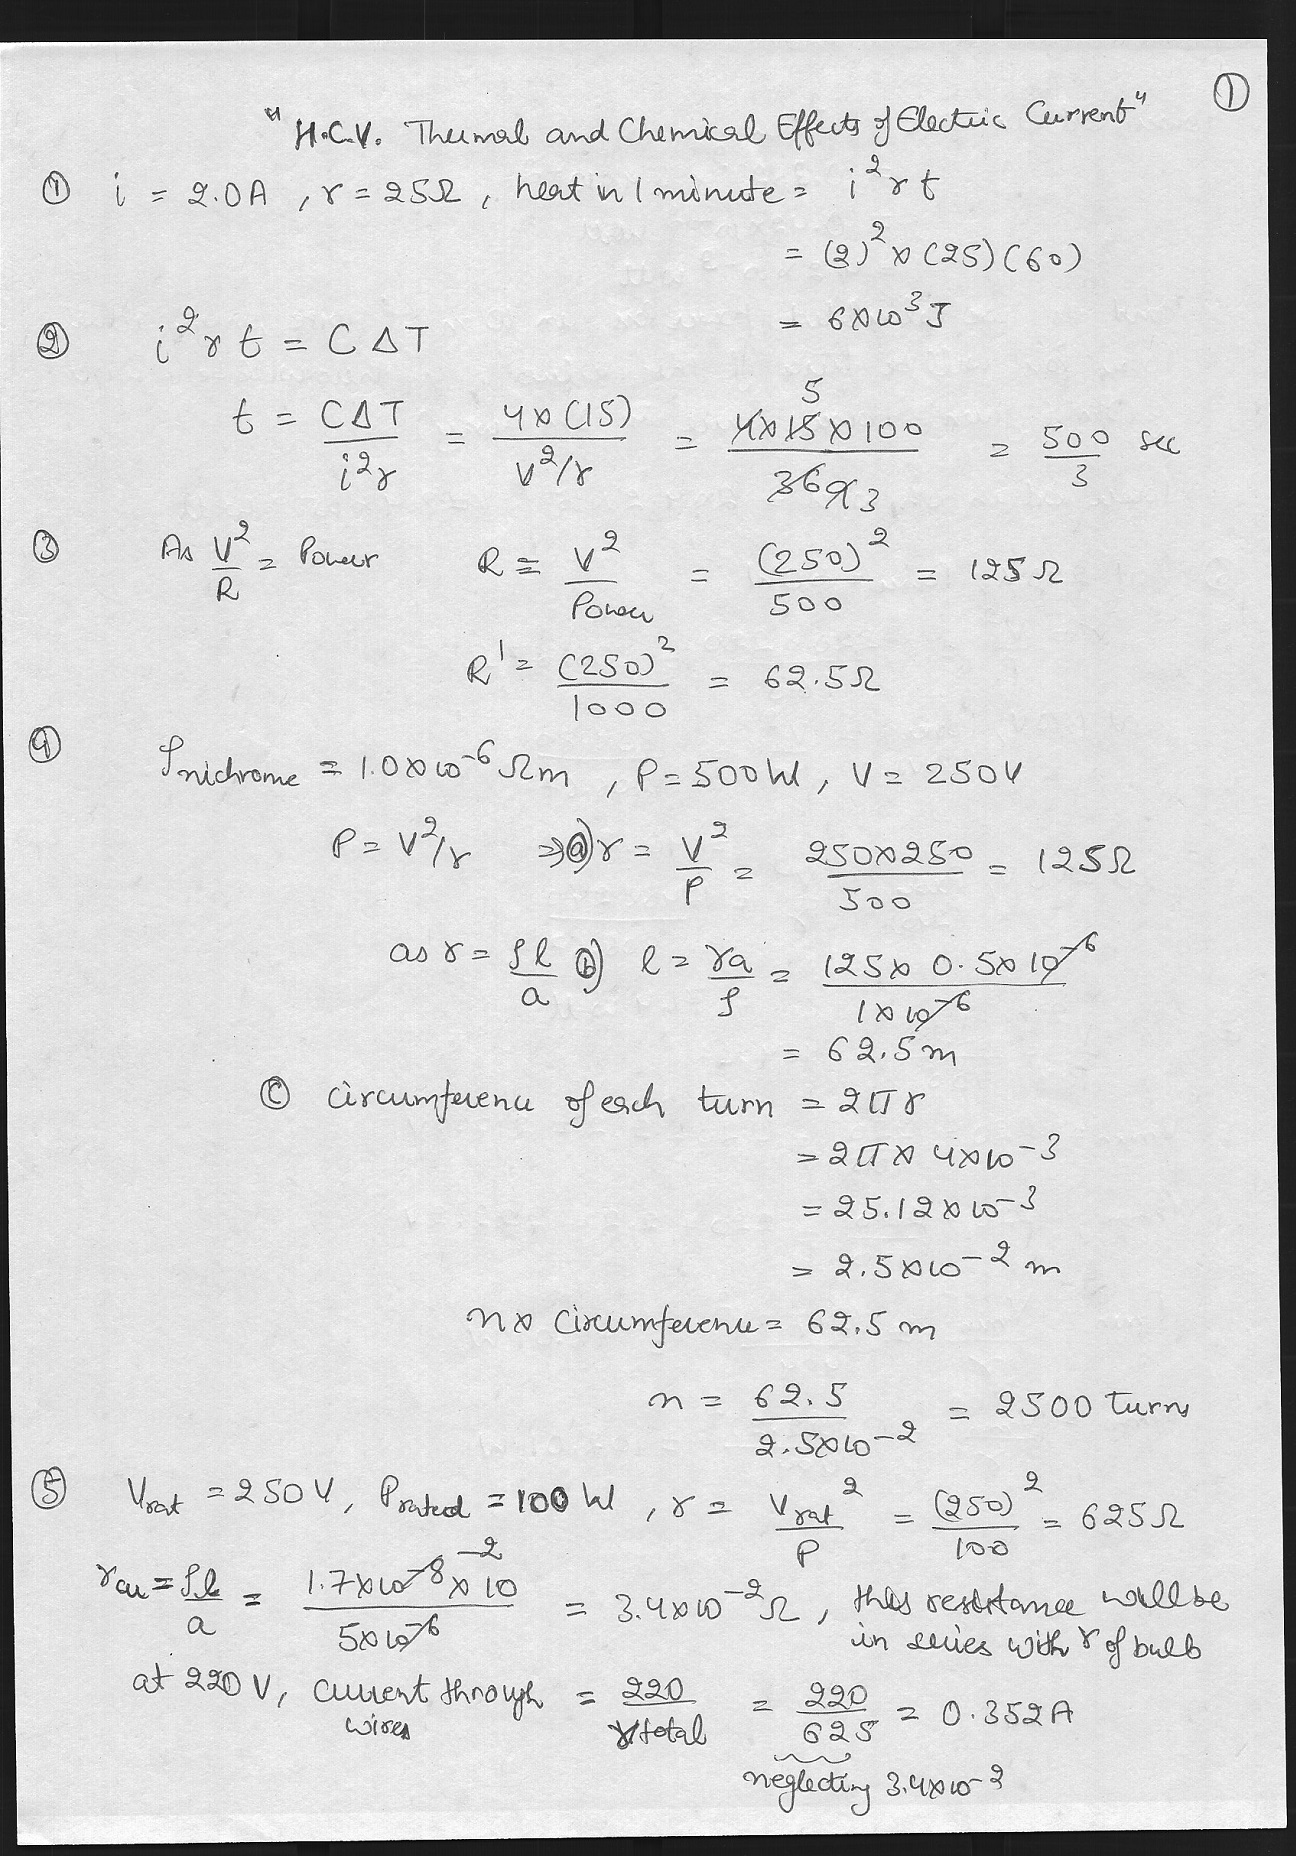 ①
"H.C.V. Thermal and Chemical Effects of Electric Current"
① i = 2.0A , r = 25Ω , heat in 1 minute = i²rt
= (2)² × (25)(60)
= 6×10³ J
② i²rt = CΔT
t = CΔT/i²r = 4×(15)/V²/r = 4×15×100/36×3 5 = 500/3 sec
③ As V²/R = Power R = V²/Power = (250)²/500 = 125Ω
R' = (250)²/1000 = 62.5Ω
④ ρnichrome = 1.0×10⁻⁶ Ωm , P = 500W , V = 250V
P = V²/r ⇒ ⓐ) r = V²/P = 250×250/500 = 125Ω
as r = ρl/a ⓑ) l = ra/ρ = 125× 0.5×10⁻⁶/1×10⁻⁶
= 62.5m
ⓒ circumference of each turn = 2πr
= 2π× 4×10⁻³
= 25.12×10⁻³
= 2.5×10⁻² m
n× Circumference = 62.5 m
n = 62.5/2.5×10⁻² = 2500 turns
⑤ Vrat = 250V, Prated = 100W , r = Vrat²/P = (250)²/100 = 625Ω
rcu = ρl/a = 1.7×10⁻⁸ ⁻²×10/5×10⁻⁶ = 3.4×10⁻²Ω , this resistance will be
in series with r of bulb
at 220V, current through = 220/rtotal = 220/625 = 0.352A
wires
neglecting 3.4×10⁻²